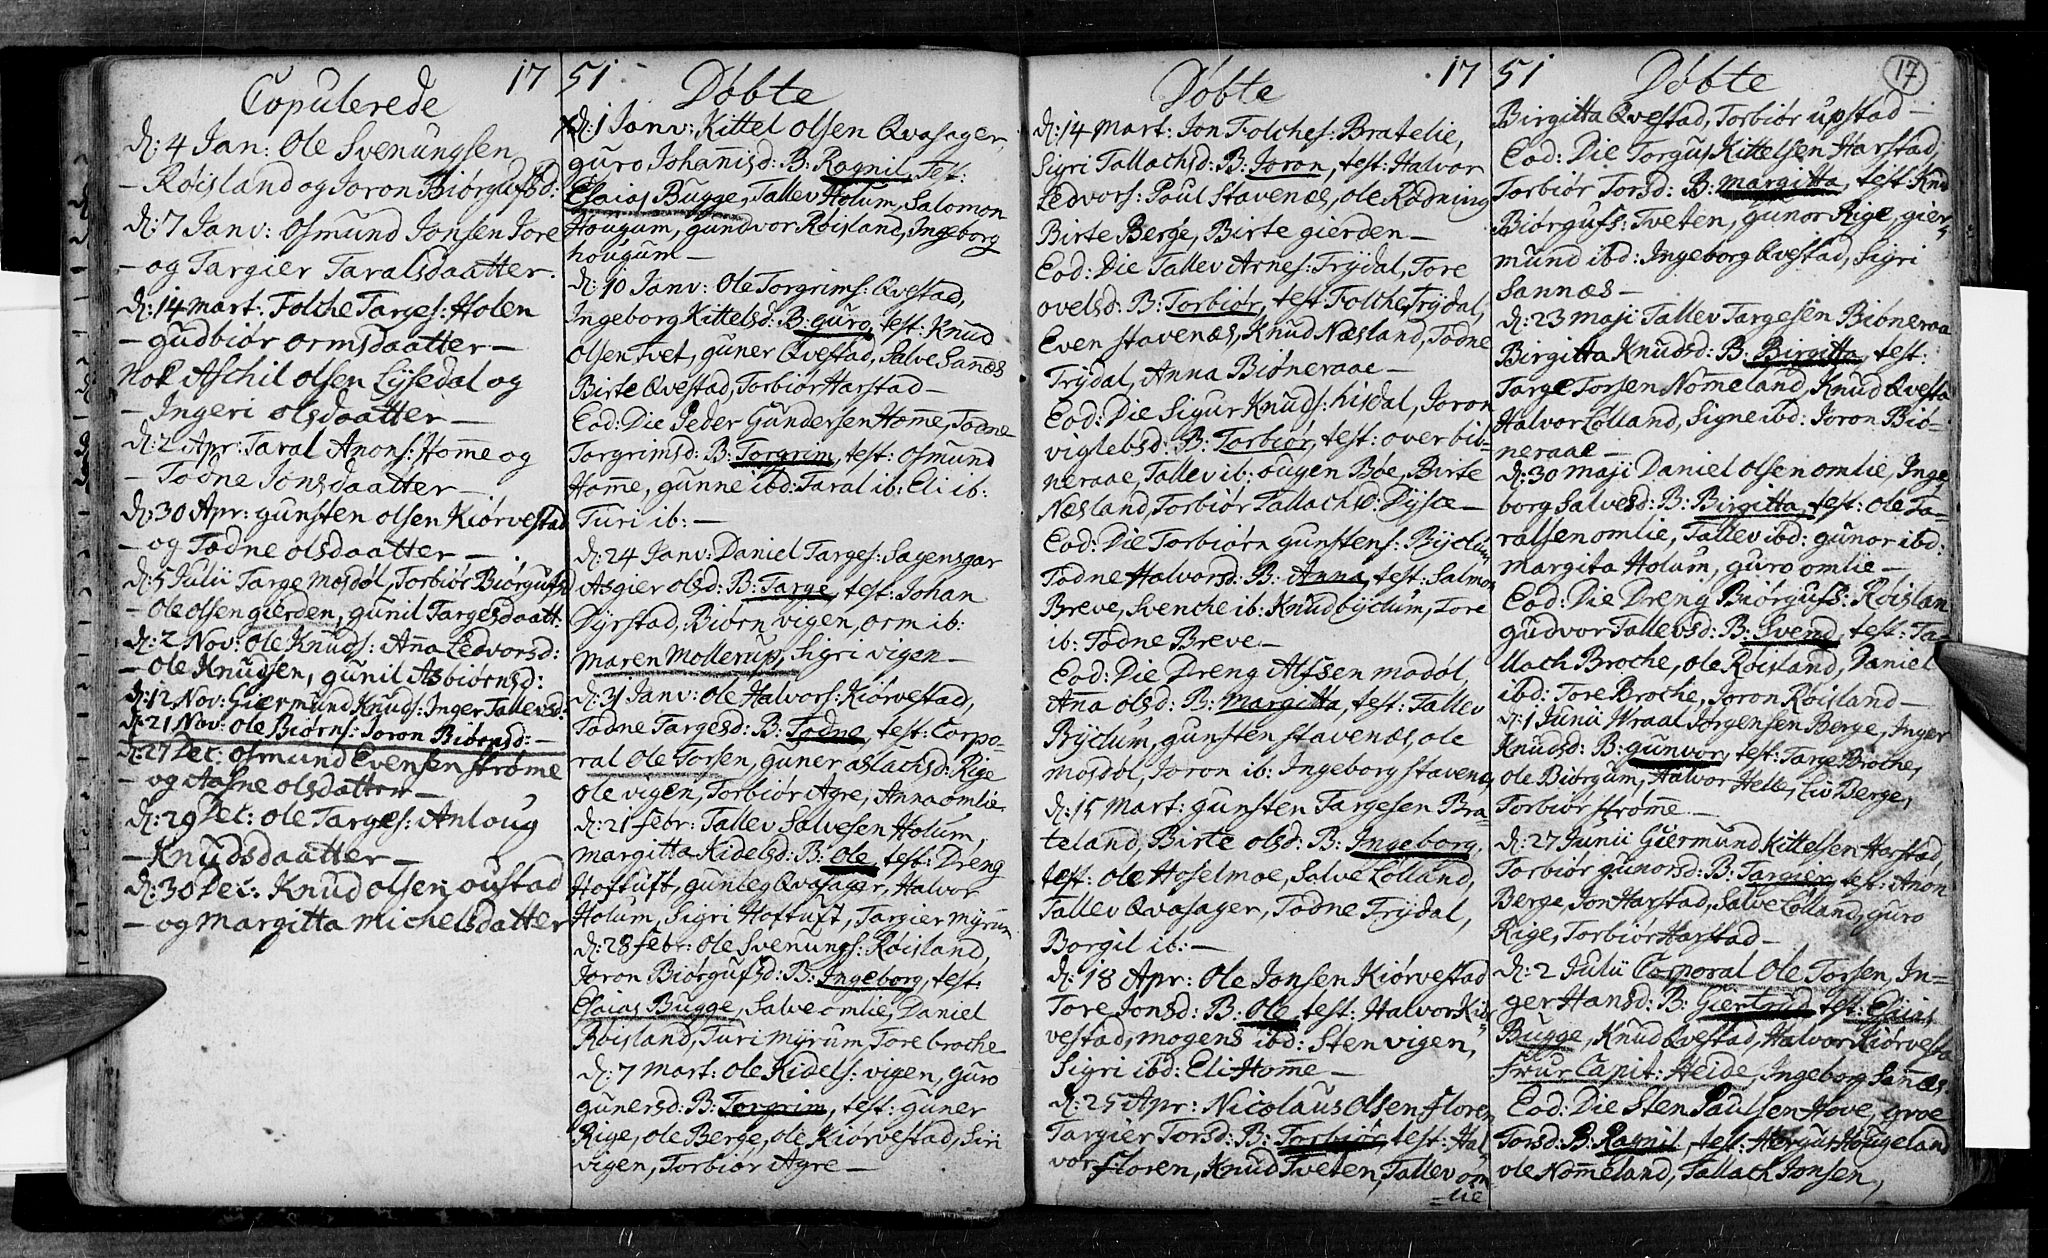 17 51
Copulerede
d: 4 Jan: Ole Svenungsen
- Røisland og Joron Biørgufsd:
d: 7 Janv: Osmund Jonsen Jore
- og Targier Taralsdaatter.
d: 14 Mart: Folche Targes: Holen
- Gudbiør Ormsdaatter -
Nok Aschil Olsen Lysedal og
- Ingeri Olsdaatter -
d: 2 Apr: Taral Anons: Hom̄e og
- Todne Jonsdaatter -
d: 30 Apr: Gunsten Olsen Kiørvestad
- og Todne Olsdaatter -
d: 5 Julii Targe Mosdøl, Torbiør Biørgufsd
- Ole Olsen Gierden, Gunil Targesdaatt.
d: 2 Nov: Ole Knuds: An̄a Ledvorsd:
- Ole Knudsen, Gunil Asbiørnsd:
d: 12 Nov: Giermund Knuds: Inger Tallevsd:
d: 21 Nov: Ole Biørns: Joron Biørnsd: -
d: 27 Dec: Osmund Evensen Strøme
- og Aasne Olsdatter -
d: 29 Dec: Ole Targes: Anloug
- Knudsdaatter -
d: 30 Dec: Knud Olsen Oustad
- og Margitta Michelsdatter
Døbte
d: 1 Janv: Kittel Olsen Qvasager,
Guro Johan̄isd: B: Ragnil, Tes:
Esaias Bugge, Tallev Holum, Salomon
Hougum, Gundvor Røisland, Ingeborg
Hougum -
d: 10 Janv: Ole Torgrims: Qvestad,
Ingeborg Kittelsd: B: Guro, test: Knud
Olsen Tvet, Guner Qvestad, Salve San̄es
Birte Qvestad, Torbiør Harstad -
Eod: Die Peder Gundersen Hom̄e, Todne
Torgrimsd: B: Torgrim, test: Osmund
Hom̄e, Gunne ibd: Taral ib: Eli ib:
Turi ib: -
d: 24 Janv: Daniel Targes: Sagensgar
Asgier Olsd: B: Targe, test: Johan
Dyrstad, Biørn Vigen, Orm ib:
Maren Mollerup, Sigri Vigen -
d: 31 Janv: Ole Halvors: Kiørvestad,
Todne Targesd: B: Todne, test: Corpo-
ral Ole Torsen, Guner Aslachsd: Rige
Ole Vigen, Torbiør Agre, Anna Omlie
d: 21 Febr: Tallev Salvesen Holum,
Margitta Kidelsd: B: Ole, test: Dreng
Hoftuft, Gunleg Qvasager, Halvor
Holum, Sigri Hoftuft, Targier Myrum
d: 28 Febr: Ole Svenungs: Røisland,
Joron Biørgufsd: B: Ingeborg, test:
Esaias Bugge, Salve Omlie, Daniel
Røisland, Turi Myrum, Tore Broche
d: 7 Mart: Ole Kidels: Vigen, Guro
Gunersd: B: Torgrim, test: Guner
Rige, Ole Berge, Ole Kiørvestad, Siri
Vigen, Torbiør Agre -
17 51
17
Døbte
d: 14 Mart: Jon Folches: Bratelie,
Sigri Tallachsd: B: Joron, test: Halvor
Ledvors: Paul Stavenes, Ole Rødning
Birte Berge, Birte Gierden -
Eod: Die Tallev Arnes: Trydal, Tore
Ovelsd: B: Torbiør, test: Folche Trydal,
Even Stavenæs, Knud Næsland, Todne
Trydal, Anna Biøneraae -
Eod: Die Sigur Knuds: Hisdal, Joron
Viglebsd: B: Torbiør, test: Over Biø-
neraae, Tallev ib: Ougen Bøe, Birte
Næsland, Torbiør Tallachsd: Dysce -
Eod: Die Torbiørn Gunstens: Byclum
Todne Halvorsd: B: Anna, test: Salmon
Breve, Svenche ib: Knud Byclum, Tore
ib: Todne Breve -
Eod: Die Dreng Alfsen Modøl,
An̄a Olsd: B: Margitta, test: Tallev
Byclum, Gunsten Stavenæs, Ole
Mosdøl, Joron ib: Ingeborg Stavenes,
d: 15 Mart: Gunsten Targesen Bra-
teland, Birte Olsd: B: Ingeborg,
test: Ole Hoselmoe, Salve Lolland,
Tallev Qvasager, Todne Trydal,
Borgil ib: -
d: 18 Apr: Ole Jonsen Kiørvestad
Tore Jonsd: B: Ole, test: Halvor Kiør-
vestad, Mogens ibd: Sten Vigen,
Sigri ibd: Eli Hom̄e -
d: 25 Apr: Nicolaus Olsen Floren
Targier Torsd: B: Torbiør, test: Hal-
vor Floren, Knud Tveten, Tallev Om
-lie
Døbte
Birgitta Qvestad, Torbiør Upstad -
Eod: Die Torgus Kittelsen Harstad,
Torbiør Torsd: B: Margitta, test: Knud
Biørgufs: Tveten, Gunor Rige, Gier-
mund ibd: Ingeborg Qvestad, Sigri
Sannæs -
d: 23 Maji Tallev Targesen Biøneraa
Birgitta Knudsd: B: Birgitta, test:
Targe Torsen Nomeland, Knud Qvesta
Halvor Lolland, Signe ibd: Joron Biø-
neraae -
d: 30 Maji Daniel Olsen Omlie, Inge
borg Salvesd: B: Birgitta, test: Ole Ta-
ralsen Omlie, Tallev ibd: Gunor ibd:
Margita Holum, Guro Omlie -
Eod: Die Dreng Biørgufs: Røislan
Gudvor Tallevsd: B: Svend, test: Ta-
llach Broche, Ole Røisland, Daniel
ibd: Tore Broche, Joron Røisland -
d: 1 Junii Wraal Jørgensen Berge, Inger
Knudsd: B: Gunvor, test: Targe Broche,
Ole Biørgum, Halvor Helle, Liv Berge,
Torbiør Strøm̄e -
d: 27 Junii Giermund Kittelsen Harstad,
Torbiør Gunorsd: B: Targier, test: Anon
Berge, Jon Harstad, Salve Lolland, Guro
Rige, Torbiør Harstad -
d: 2 Julii Corporal Ole Torsen, In-
ger Hansd: B: Giertrud test: Esaias
Bugge, Knud Qvestad, Halvor Kiørvesta
Frur Capit: Heide, Ingeborg San̄es.
Eod: Die Sten Paulsen Hove, Groe
Torsd: B: Ragnil, test: Hergus Hougeland
Ole Nom̄eland, Tallach Jonsen,